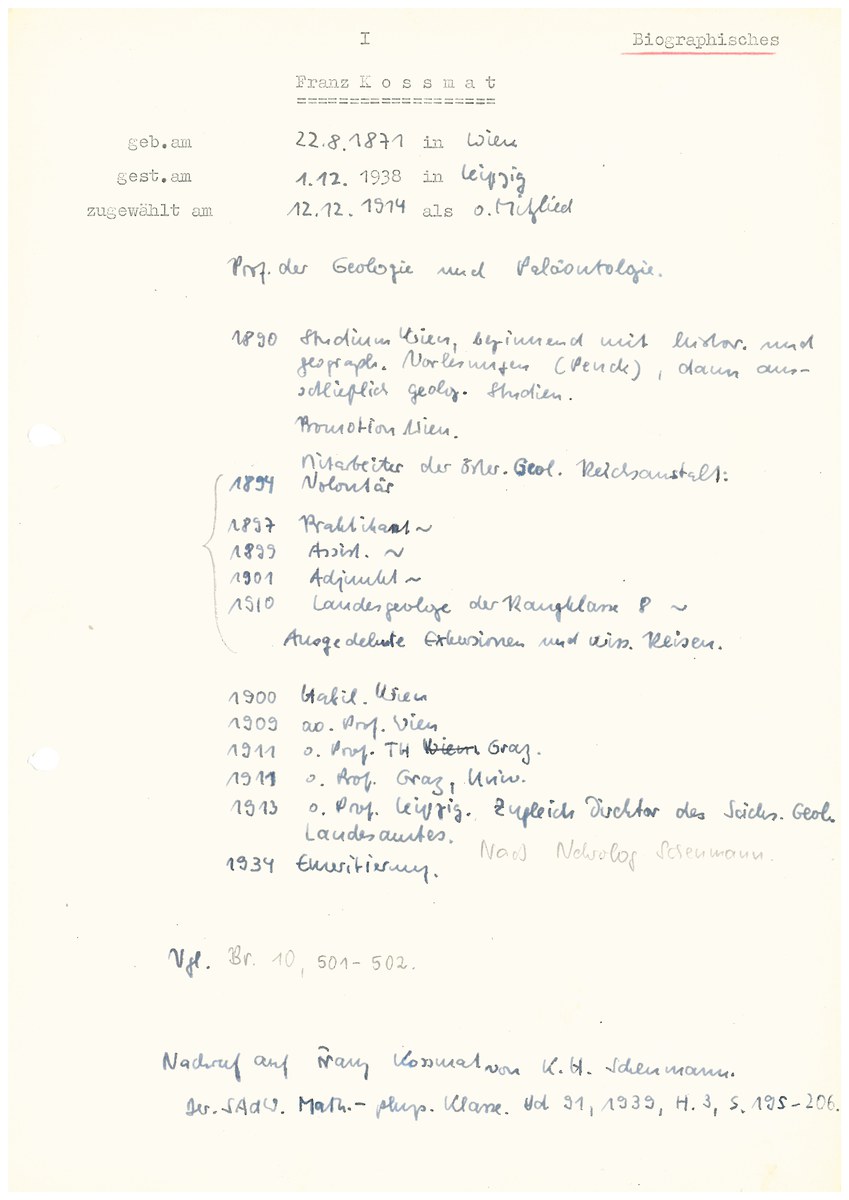 I
Biographisches
Franz K o s s m a t
====================
geb.am 22.8.1871 in Wien
gest.am 1.12. 1938 in Leipzig
zugewählt am 12.12. 1914 als o. Mitglied
Prof. der Geologie und Paläontolgie.
1890 Studium Wien, beginnend mit histor. und
geograph. Vorlesungen (Penck), dann aus-
schließlich geolog. Studien.
Promotion Wien.
Mitarbeiter der öster. Geol. Reichsanstalt:
1894 Volontär
1897 Praktikant ~
1899 Assist. ~
1901 Adjunkt ~
1910 Landesgeologe der Rangklasse 8 ~
Ausgedehnte Exkursionen und wiss. Reisen.
1900 Habil. Wien
1909 ao. Prof. Wien
1911 o. Prof. TH Wien Graz.
1911 o. Prof. Graz, Univ.
1913 o. Prof. Leipzig. Zugleich Direktor des Sächs. Geol.
Landesamtes.
Nach Nekrolog Scheumann.
1934 Emeritierung.
Vgl. Br. 10, 501-502.
Nachruf auf Franz Kossmat von K.H. Scheumann.
Ber. SAdW. Math.- phys. Klasse. Bd 91, 1939, H. 3, S. 195-206.